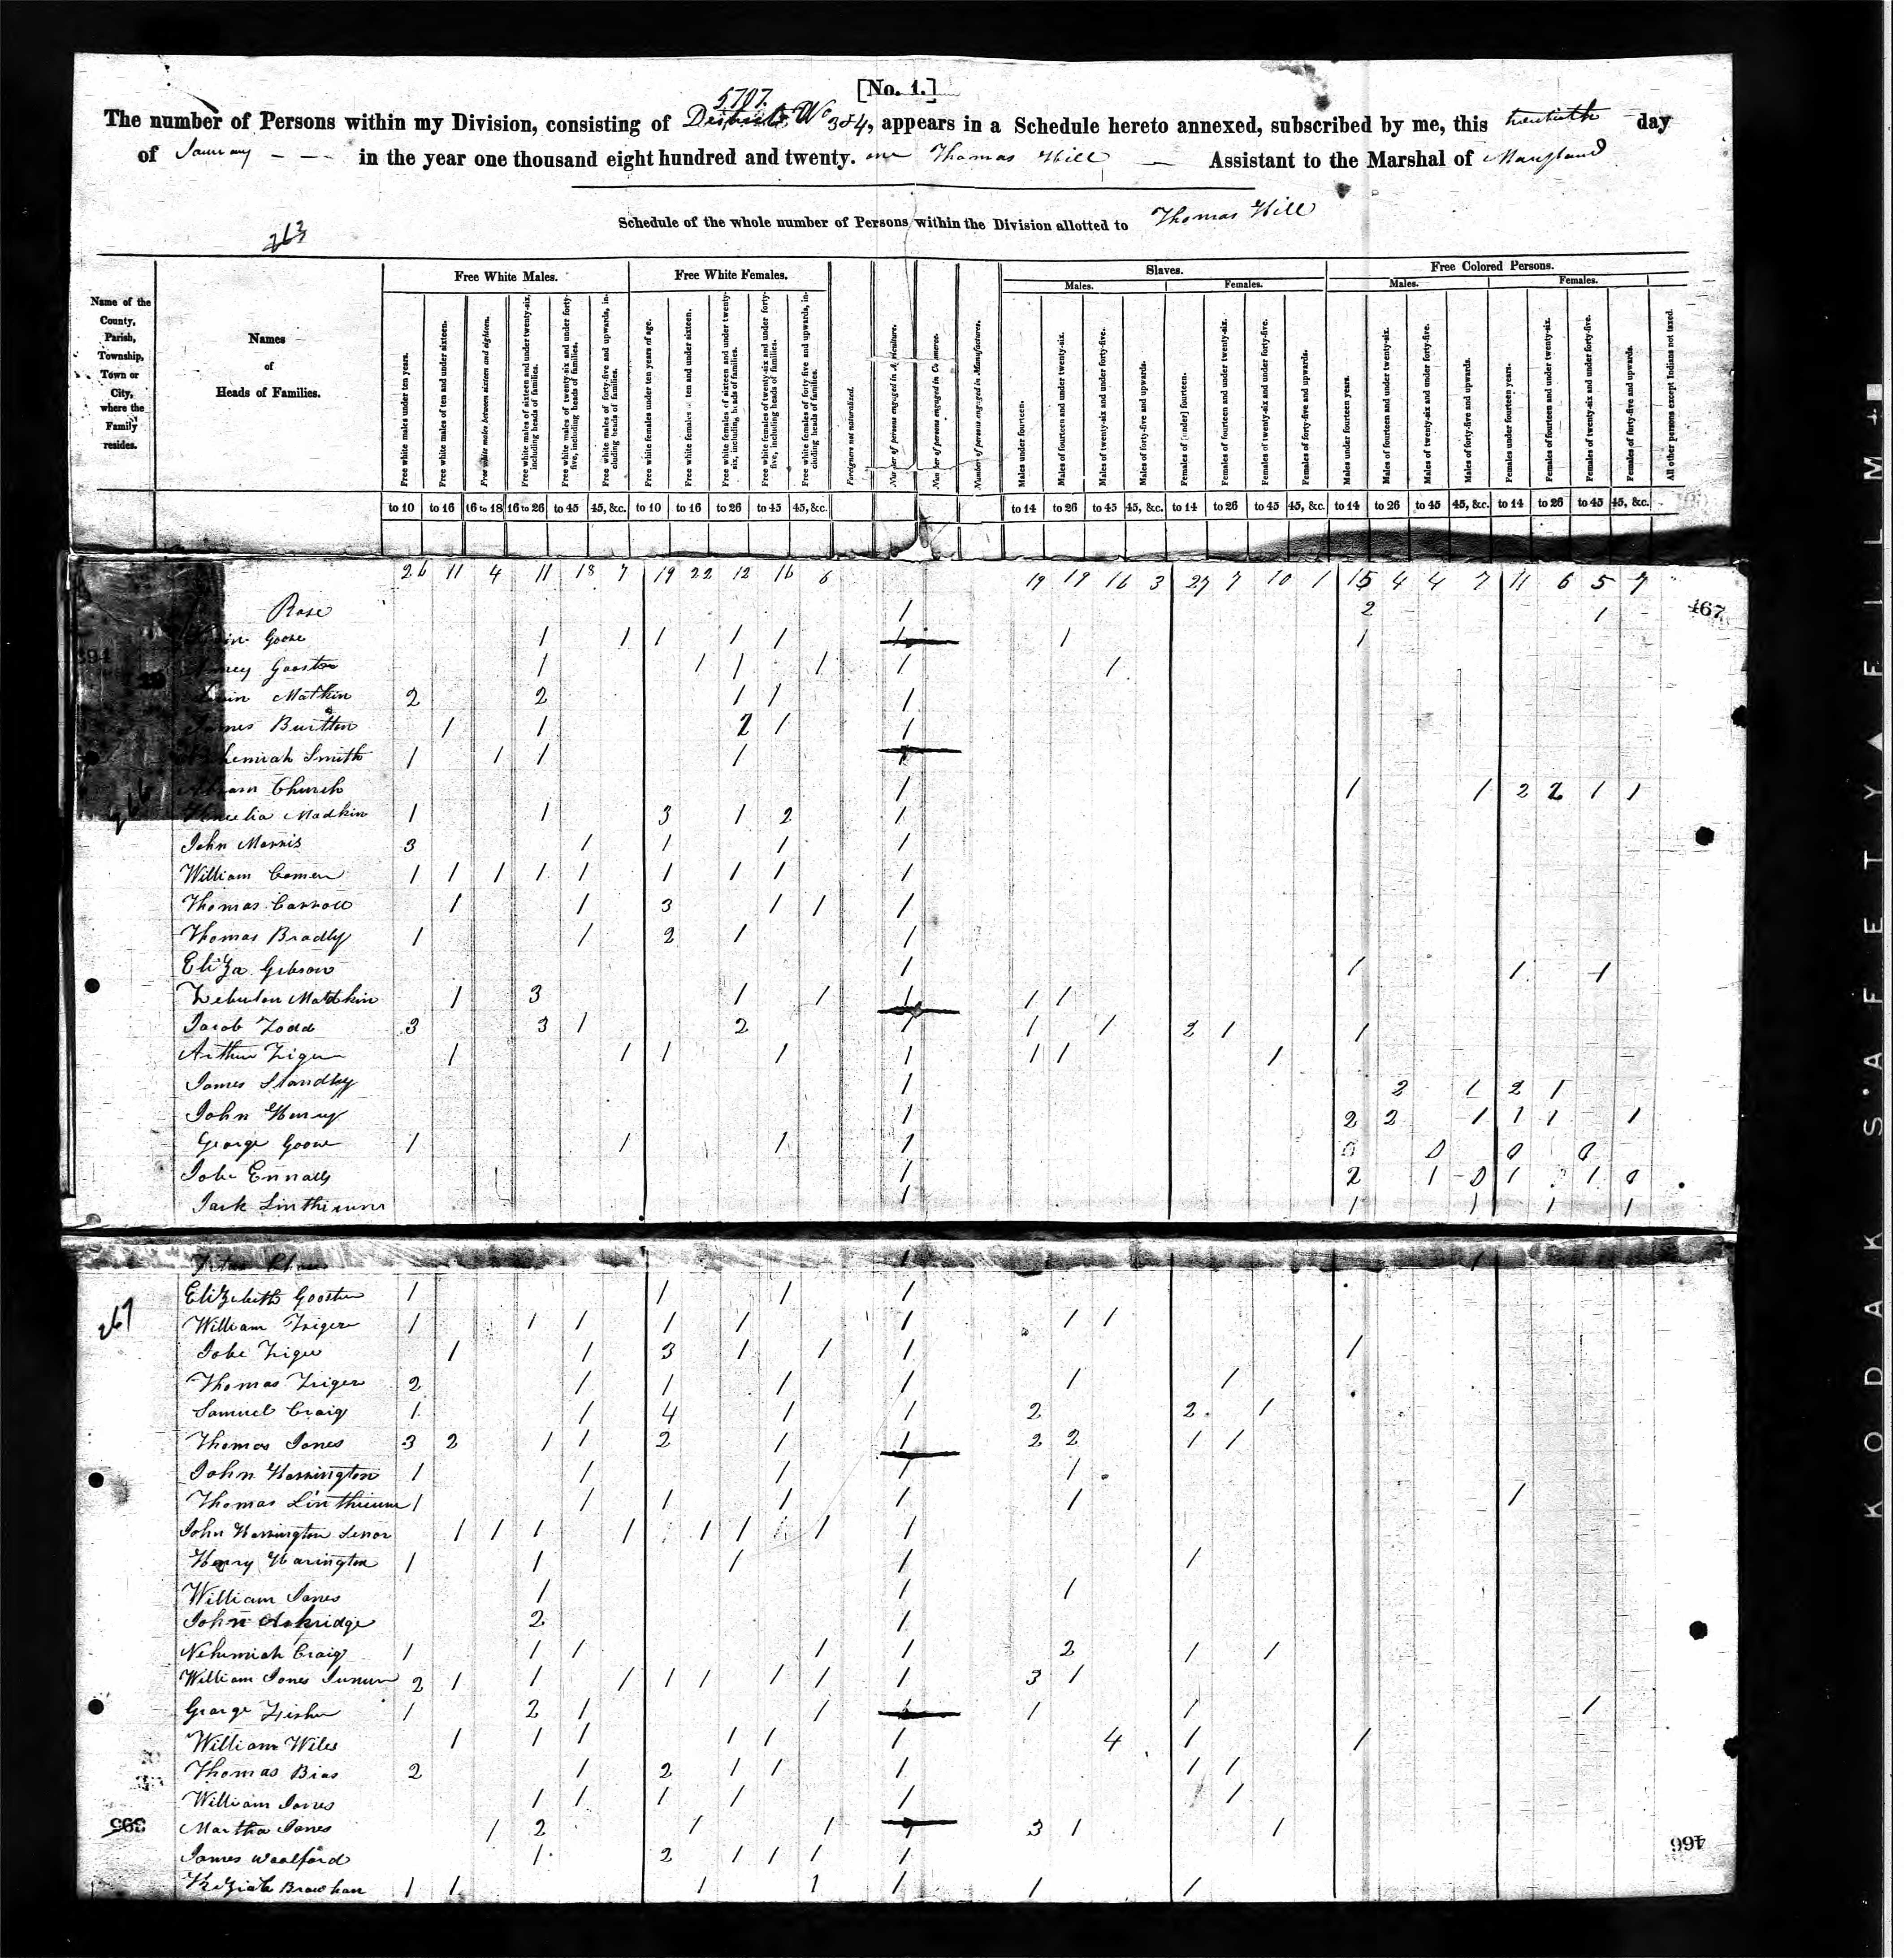 [No. 1.]
5707.
The number of Persons within my Division, consisting of Districts No 3 & 4, appears in a Schedule hereto annexed, subscribed by me, this twentieth day
of January - - - in the year one thousand eight hundred and twenty. one Thomas Hill — Assistant to the Marshal of Maryland
Schedule of the whole number of Persons within the Division allotted to Thomas Hill
263
Name of the County, Parish, Township, Town or City, where the Family resides.
Names of Heads of Families.
Free White Males.
Free White Females.
Slaves.
Free Colored Persons.
Males.
Females.
Males.
Females.
Free white males under ten years.
Free white males of ten and under sixteen.
Free white males between sixteen and eighteen.
Free white males of sixteen and under twenty-six, including heads of families.
Free white males of twenty-six and under forty-five, including heads of families.
Free white males of forty-five and upwards, including heads of families.
Free white females under ten years of age.
Free white females ten and under sixteen.
Free white females of sixteen and under twenty-six, including heads of families.
Free white females of twenty-six and under forty-five, including heads of families.
Free white females of forty five and upwards, including heads of families.
Foreigners not naturalized.
Number of persons engaged in Agriculture.
Number of persons engaged in Commerce.
Number of persons engaged in Manufactures.
Males under fourteen.
Males of fourteen and under twenty-six.
Males of twenty-six and under forty-five.
Males of forty-five and upwards.
Females of [under] fourteen.
Females of fourteen and under twenty-six.
Females of twenty-six and under forty-five.
Females of forty-five and upwards.
Males under fourteen years.
Males of fourteen and under twenty-six.
Males of twenty-six and under forty-five.
Males of forty-five and upwards.
Females under fourteen years.
Females of fourteen and under twenty-six.
Females of twenty-six and under forty-five.
Females of forty-five and upwards.
All other persons except Indians not taxed.
to 10 to 16 16 to 18 16 to 26 to 45 45, &c. to 10 to 16 to 26 to 45 45, &c. to 14 to 26 to 45 45, &c. to 14 to 26 to 45 45, &c. to 14 to 26 to 45 45, &c. to 14 to 26 to 45 45, &c.
26 11 4 11 18 7 19 22 12 16 6 19 19 16 3 27 7 10 1 15 4 4 7 11 6 5 7
Rose 1 2 1 467
Goose 1 1 1 1 1 1 1 1
Gooster 1 1 1 1 1 1
Matkin 2 2 1 1 1
James Buitten 1 1 2 1 1
Nehemiah Smith 1 1 1 1 1
Abram Church 1 1 1 2 2 1 1
Madkin 1 1 3 1 2 1
John Morris 3 1 1 1 1
William Comen 1 1 1 1 1 1 1 1 1
Thomas Carroll 1 1 3 1 1 1
Thomas Bradly 1 1 2 1 1
Eliza Gibson 1 1 1 1
Zebulon Matdkin 1 3 1 1 1 1 1
Jacob Todd 3 3 1 2 1 1 1 2 1 1
Arthur 1 1 1 1 1 1 1 1
James Standly 1 2 1 2 1
John Henry 1 2 2 1 1 1 1
George Goose 1 1 1 1 0 0 0 0
Jobe Ennalls 1 2 1 0 1 1 0
Jack Linthicum 1 1 1 1 1
1 1
Elizebeth Gooster 1 1 1 1
267
William 1 1 1 1 1 1 1 1
Jobe 1 1 3 1 1 1 1
Thomas 2 1 1 1 1 1 1
Samuel Craig 1 1 4 1 1 2 2 1
Thomas Jones 3 2 1 1 2 1 1 2 2 1 1
John Harrington 1 1 1 1 1
Thomas Linthicum 1 1 1 1 1 1 1
John Harrington Senor 1 1 1 1 1 1 1 1
Henry Harington 1 1 1 1 1
William Jones 1 1 1
John Askridge 2 1
Nehemiah Craig 1 1 1 1 1 2 1 1
William Jones Junior 2 1 1 1 1 1 1 1 1 3 1
George Fisher 1 2 1 1 1 1 1 1
William Wiles 1 1 1 1 1 1 4 1 1
Thomas Bias 2 1 2 1 1 1 1 1
William Jones 1 1 1 1 1 1
Martha Jones 1 2 1 1 1 3 1 1
James Woolford 1 2 1 1 1 1
Keziah Brawhan 1 1 1 1 1 1 1
395
466
KODAK S'AFETY FILM